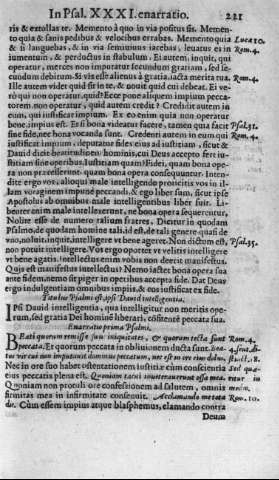 In Psal. XXXI. enarratio. 221
ris & extollas te. Memento à quo in via positus sis. Memen-
to quia & sanis pedibus & velocibus errabas. Memento quia Luca 10.
& si languebas, & in via semiuiuus iacebas, leuatus es in Rom. 4.
iumentum, & perductus in stabulum. Ei autem, inquit, qui
operatur, merces non imputatur secundum gratiam, sed se-
cundum debitum. Si vis esse alienus à gratia, iacta merita tua. Rom. 4.
Ille autem videt quid sit in te, & nouit quid cui debeat. Ei ve-
rò qui non operatur, quid? Ecce pone aliquem impium pecca-
torem non operatur, quid autem credit? Credit autem in
eum, qui iustificat impium. Ex eo enim quia non operatur
bene, impius est. Etsi bona videatur facere, tamen quia facit Psal. 31.
sine fide, nec bona vocanda sunt. Credenti autem in eum qui Rom. 4.
iustificat impium, deputatur fides eius ad iustitiam, sicut &
Dauid dicit beatitudinem hominis, cui Deus accepto fert iu-
stitiam sine operibus. Iustitiam quam? Fidei, quam bona ope-
ra non præcesserunt, quam bona opera consequuntur. Inten-
dite ergo vos, alioqui male intelligendo proiicitis vos in il-
lam voraginem impune peccandi, & ego liber sum, sicut ipse
Apostolus ab omnibus male intelligentibus liber fuit. Li-
benter enim male intellexerunt, ne bona opera sequerentur.
Nolite esse de numero talium fratres. Dicitur in quodam
Psalmo, de quodam homine tali, id est, de tali genere quasi de
vno, noluit, inquit, intelligere vt bene ageret. Non dictum est, Psal. 35.
non potuit intelligere. Vos ergo oportet vt velitis intelligere
vt bene agatis. Intellectus enim vobis non deerit manifestus.
Quis est manifestus intellectus? Nemo iactet bona opera sua
ante fidem, nemo sit piger in operibus accepta fide. Dat Deus
ergo indulgentiam omnibus impiis, & eos iustificat ex fide.
Titulus Psalmi est, ipsi Dauid intelligentia.
IPsi Dauid intelligentia, qua intelligitur non meritis ope-
rum, sed gratia Dei hominē liberari, confitentē peccata sua.
Enarratio prima Psalmi.
BEati quorum remissæ sunt iniquitates, & quorum tecta sunt Rom. 4.
peccata. Et quorum peccata in obliuionem ducta sunt.
tus vir cui non imputauit dominus peccatum, nec est in ore eius dolus.
Nec in ore suo habet ostentationem iustitiæ cùm conscientia
eius peccatis plena est. Quoniam tacui inueterauerunt ossa mea.
Quoniam non protuli ore confessionem ad salutem, omnis
firmitas mea in infirmitate consenuit. Acclamando me tota Rom. 10.
die. Cùm essem impius atque blasphemus, clamando contra
Deum